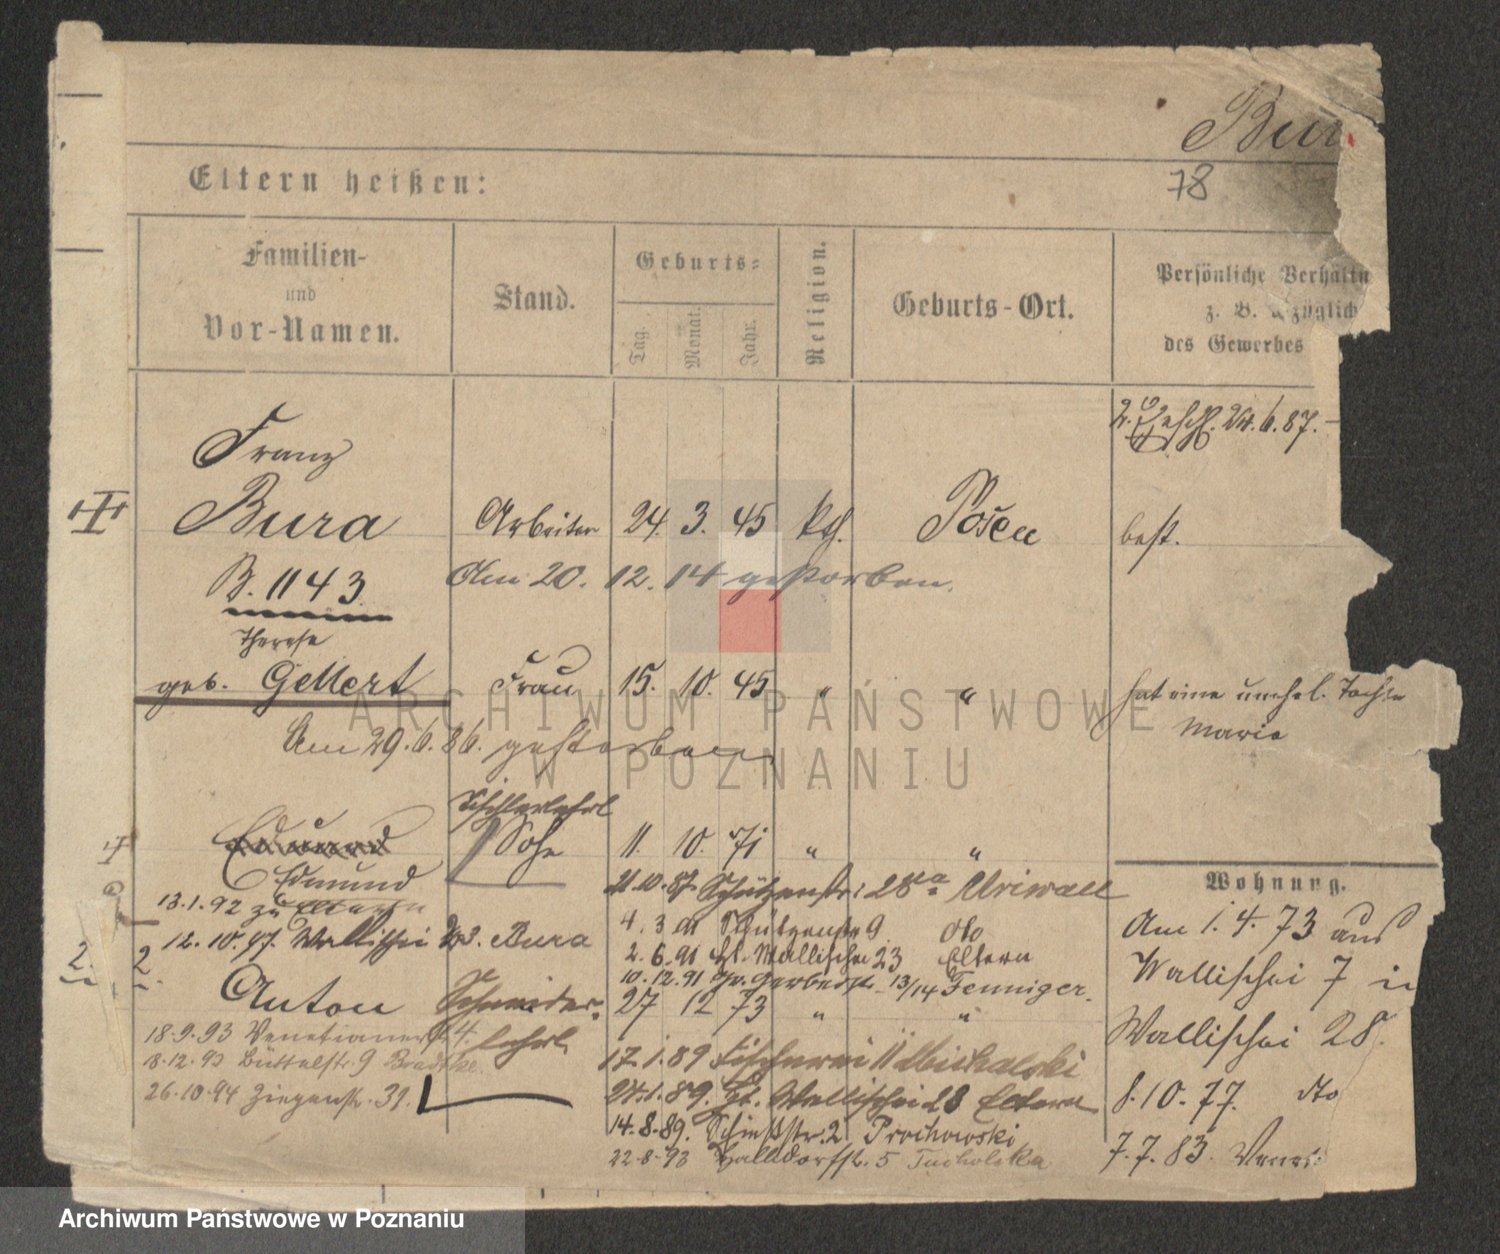 Bur
78
Eltern heißen:
Familien-
und
Vor-Namen.
Stand.
Geburts-
Tag.
Monat.
Jahr.
Religion.
Geburts-Ort.
Persönliche Verhältn
z. B. bezüglich
des Gewerbes
2. Eheschl. 24.6.87.-
Franz
Bura
Arbeiter 24. 3. 45 kth. Posen best.
B. 1143
Am 20. 12. 14 gestorben.
Therese
geb. Gellert Frau 15. 10. 45 " " hat eine unehel. Tochter
Marie
Am 29.6.86. gestorben
Tischlerlehrl
Edmund Sohn 11 10. 71 " "
Edmund
21.10.87 Schützenstr. 28a
Wohnung.
13.1.92 zu Eltern
4. 3 Schützenstr 9 dto
Am 1. 4. 73 aus
12.10.97. Wallischei 23. Bura
2.6.91 Gr. Wallischei 23 Eltern
Wallischei 7 in
2. 2.
10.12.91 Gr. Gerberstr. 13/14 Fenniger.
Anton Schneider- 27 12 73 " "
lehrl.
Wallischei 28.
18.9.93 Venetianerstr 4.
17.1.89 Fischerei 11 Michalski
18.12.93 Büttelstr. 9 Bradtke.
24.1.89. Gr. Wallischei 28 Eltern
8.10.77. dto
26.10.94 Ziegenstr. 31.
14.8.89. Schießstr. 2 Prochowski
7.7.83. Venet
22.8.93 Halldorfstr. 5 Tucholska
ARCHIWUM PAŃSTWOWE
W POZNANIU
Archiwum Państwowe w Poznaniu